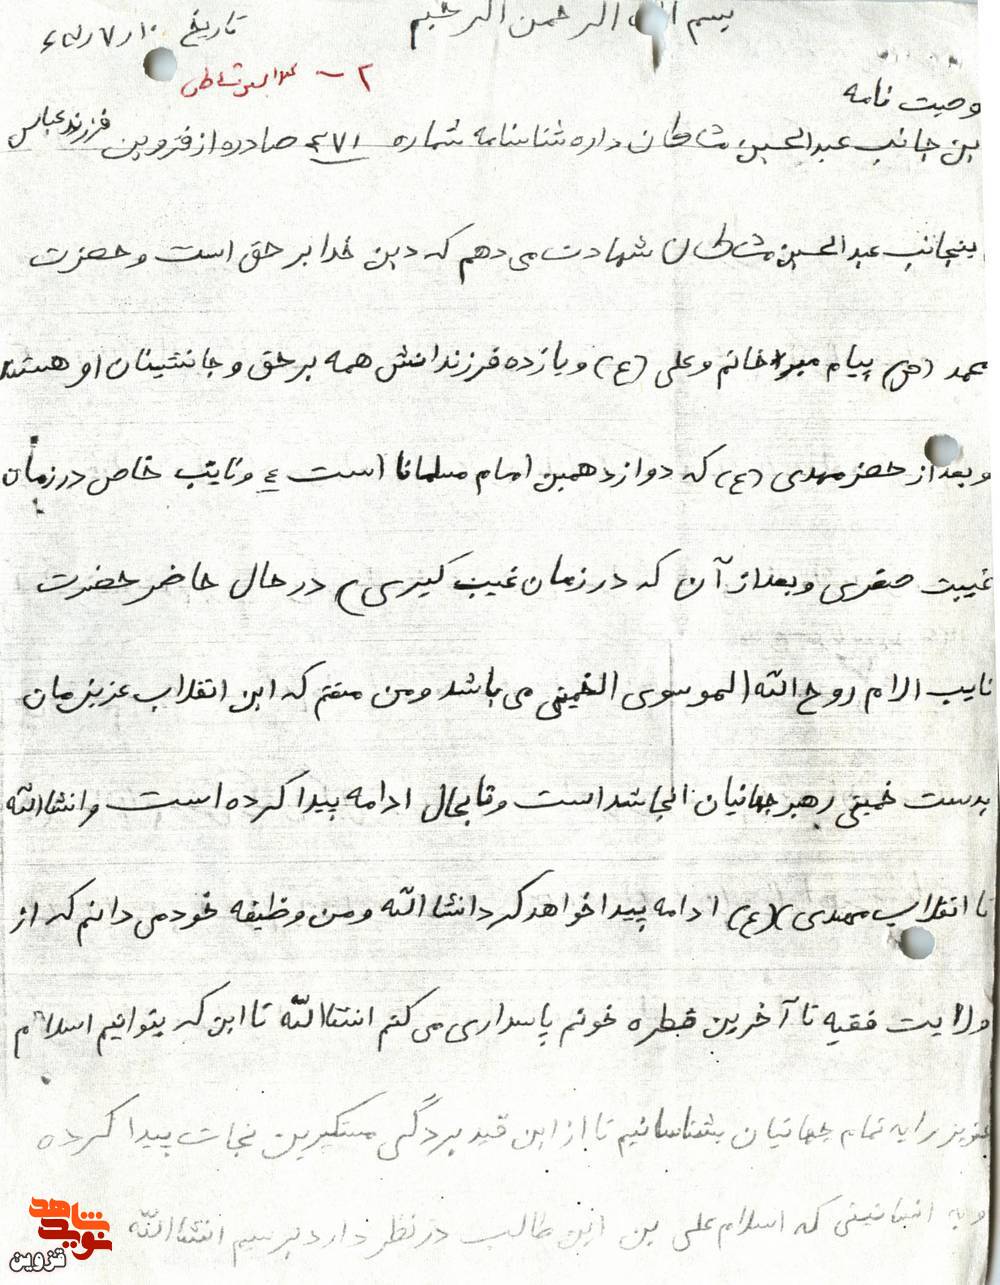 بسم الله الرحمن الرحیم
تاریخ ۱۰ر۷ر
۲ – عبدالحسین شاطان
وصیت نامه
ین جانب عبدالحسین شاطان داره شناسنامه شماره ۴۷۱ صادره از قزوین فرزند عباس
ینجانب عبدالحسین شاطان شهادت می دهم که دین خدا بر حق است و حضرت
محمد (ص) پیام مبر خاتم و علی (ع) و یازده فرزندانش همه بر حق و جانشینان او هستند
و بعد از حضر مهدی (ع) که دوازدهمین امام مسلمانا است و نایب خاص در زمان
غیبت صغری و بعد از آن که در زمان غیب کبری در حال حاضر حضرت
نایب الامام روح الله الموسوی الخمینی می باشد و من معتقم که این انقلاب عزیزمان
بدست خمینی رهبر جهانیان الجا شد است و تا بحال ادامه پیدا کرده است و انشاالله
تا انقلاب مهدی (ع) ادامه پیدا خواهد کرد انشاالله و من وظیفه خود می دانم که از
ولایت فقیه تا آخرین قطره خونم پاسداری می کنم انشاالله تا این که بتوانیم اسلام
عزیز را به تمام جهانیان بشناسانیم تا از این قید بردگی مستکبرین نجات پیدا کرده
و به انسانیتی که اسلام علی بن ابن طالب در نظر دارد برسیم انشاالله
نوید شاهد
قزوین